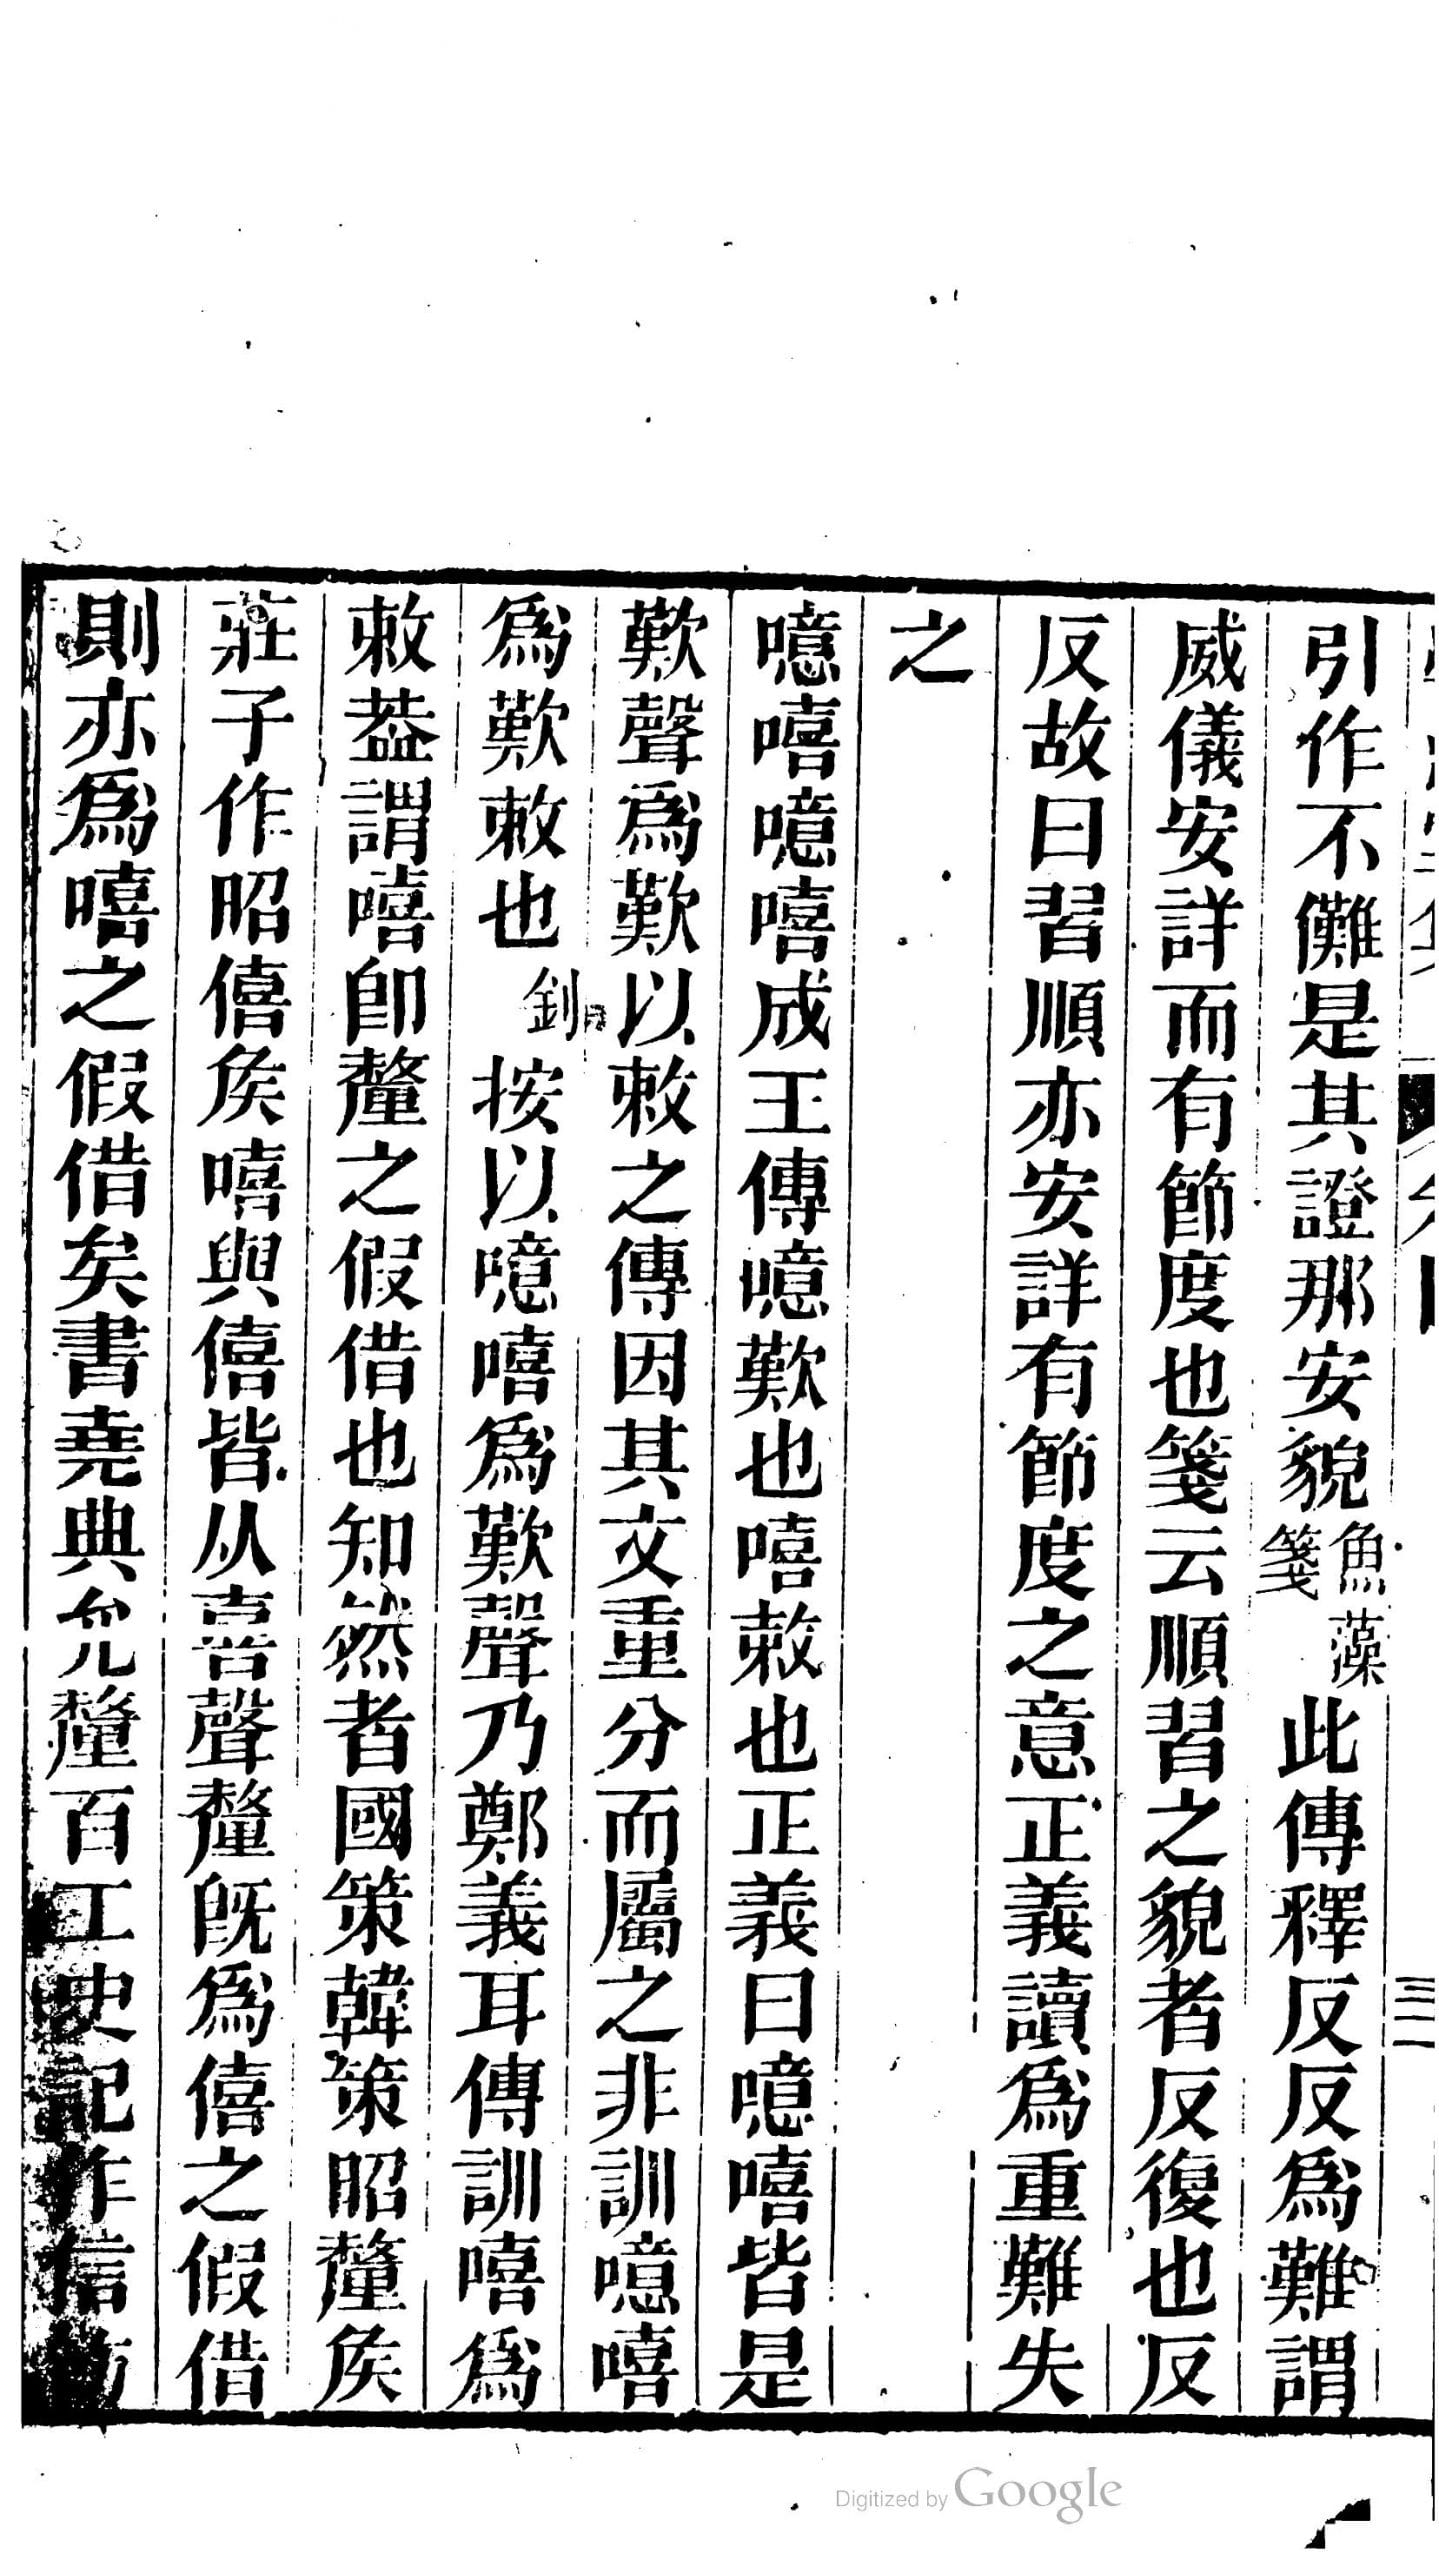 引作不儺是其證那安貌魚藻箋此傳釋反反爲難謂
威儀安詳而有節度也箋云順習之貌者反復也反
反故曰習順亦安詳有節度之意正義讀爲重難失
之
噫嘻噫嘻成王傳噫歎也嘻敕也正義曰噫嘻皆是
歎聲爲歎以敕之傳因其文重分而屬之非訓噫嘻
爲歎敕也釗按以噫嘻爲歎聲乃鄭義耳傳訓嘻爲
敕葢謂嘻卽釐之假借也知然者國策韓策昭釐矦
莊子作昭僖矦嘻與僖皆从喜聲釐旣爲僖之假借
則亦爲嘻之假借矣書堯典允釐百工史記作信飭
三
Digitized by Google